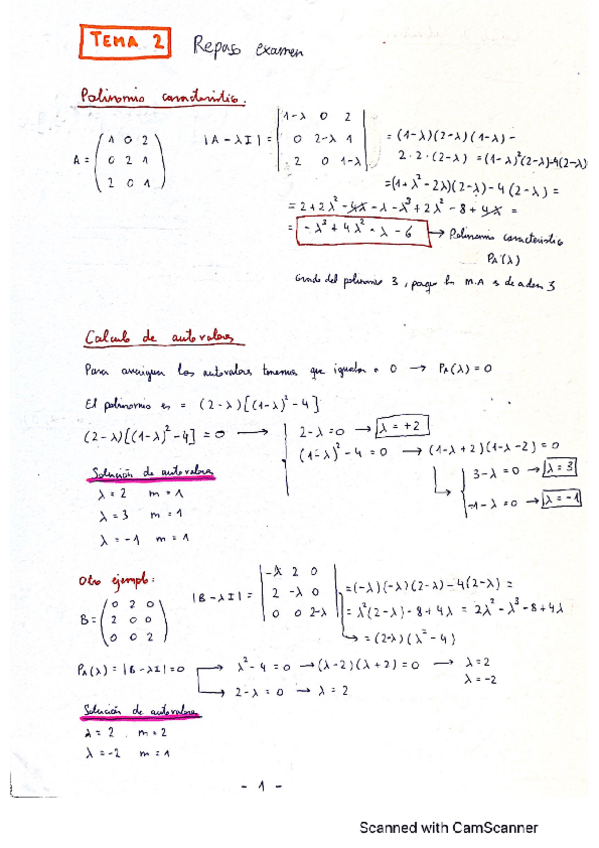 TEMA 2 Repaso examen
Polinomio característico.
A = ( 1 0 2 / 0 2 1 / 2 0 1 )
|A - λI| = | 1-λ 0 2 / 0 2-λ 1 / 2 0 1-λ | = (1-λ)(2-λ)(1-λ) -
2·2·(2-λ) = (1-λ)²(2-λ)-4(2-λ)
= (1+λ²-2λ)(2-λ)-4(2-λ) =
= 2+2λ²-4λ-λ-λ³+2λ²-8+4λ =
= -λ³+4λ²-λ-6 → Polinomio característico
PA(λ)
Grado del polinomio 3, porque la M.A es de orden 3
Calculo de autovalores
Para averiguar los autovalores tenemos que igualar a 0 → PA(λ)=0
El polinomio es = (2-λ)[(1-λ)²-4]
(2-λ)[(1-λ)²-4]=0 → 2-λ=0 → λ=+2
(1-λ)²-4=0 → (1-λ+2)(1-λ-2)=0
3-λ=0 → λ=3
-1-λ=0 → λ=-1
Solución de autovalores
λ=2 m=1
λ=3 m=1
λ=-1 m=1
Otro ejemplo:
B = ( 0 2 0 / 2 0 0 / 0 0 2 )
|B-λI| = | -λ 2 0 / 2 -λ 0 / 0 0 2-λ | = (-λ)(-λ)(2-λ)-4(2-λ) =
= λ²(2-λ)-8+4λ = 2λ²-λ³-8+4λ
→ = (2-λ)(λ²-4)
PA(λ)=|B-λI|=0 → λ²-4=0 → (λ-2)(λ+2)=0 → λ=2
λ=-2
→ 2-λ=0 → λ=2
Solución de autovalores
λ=2. m=2
λ=-2 m=1
- 1 -
Scanned with CamScanner